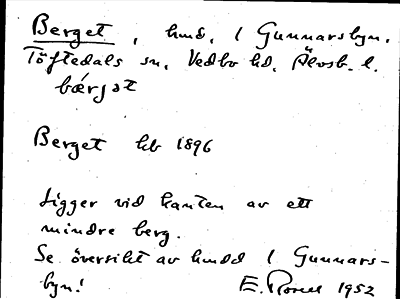 Berget, hmd. 1 Gunnarsbyn.
Töftedals sn, Vedbo hd, Älvsb. l.
bǽrjət
Berget hb 1896
Ligger vid kanten av ett
mindre berg.
Se översikt av hmdd 1 Gunnars-
byn! E. 1952